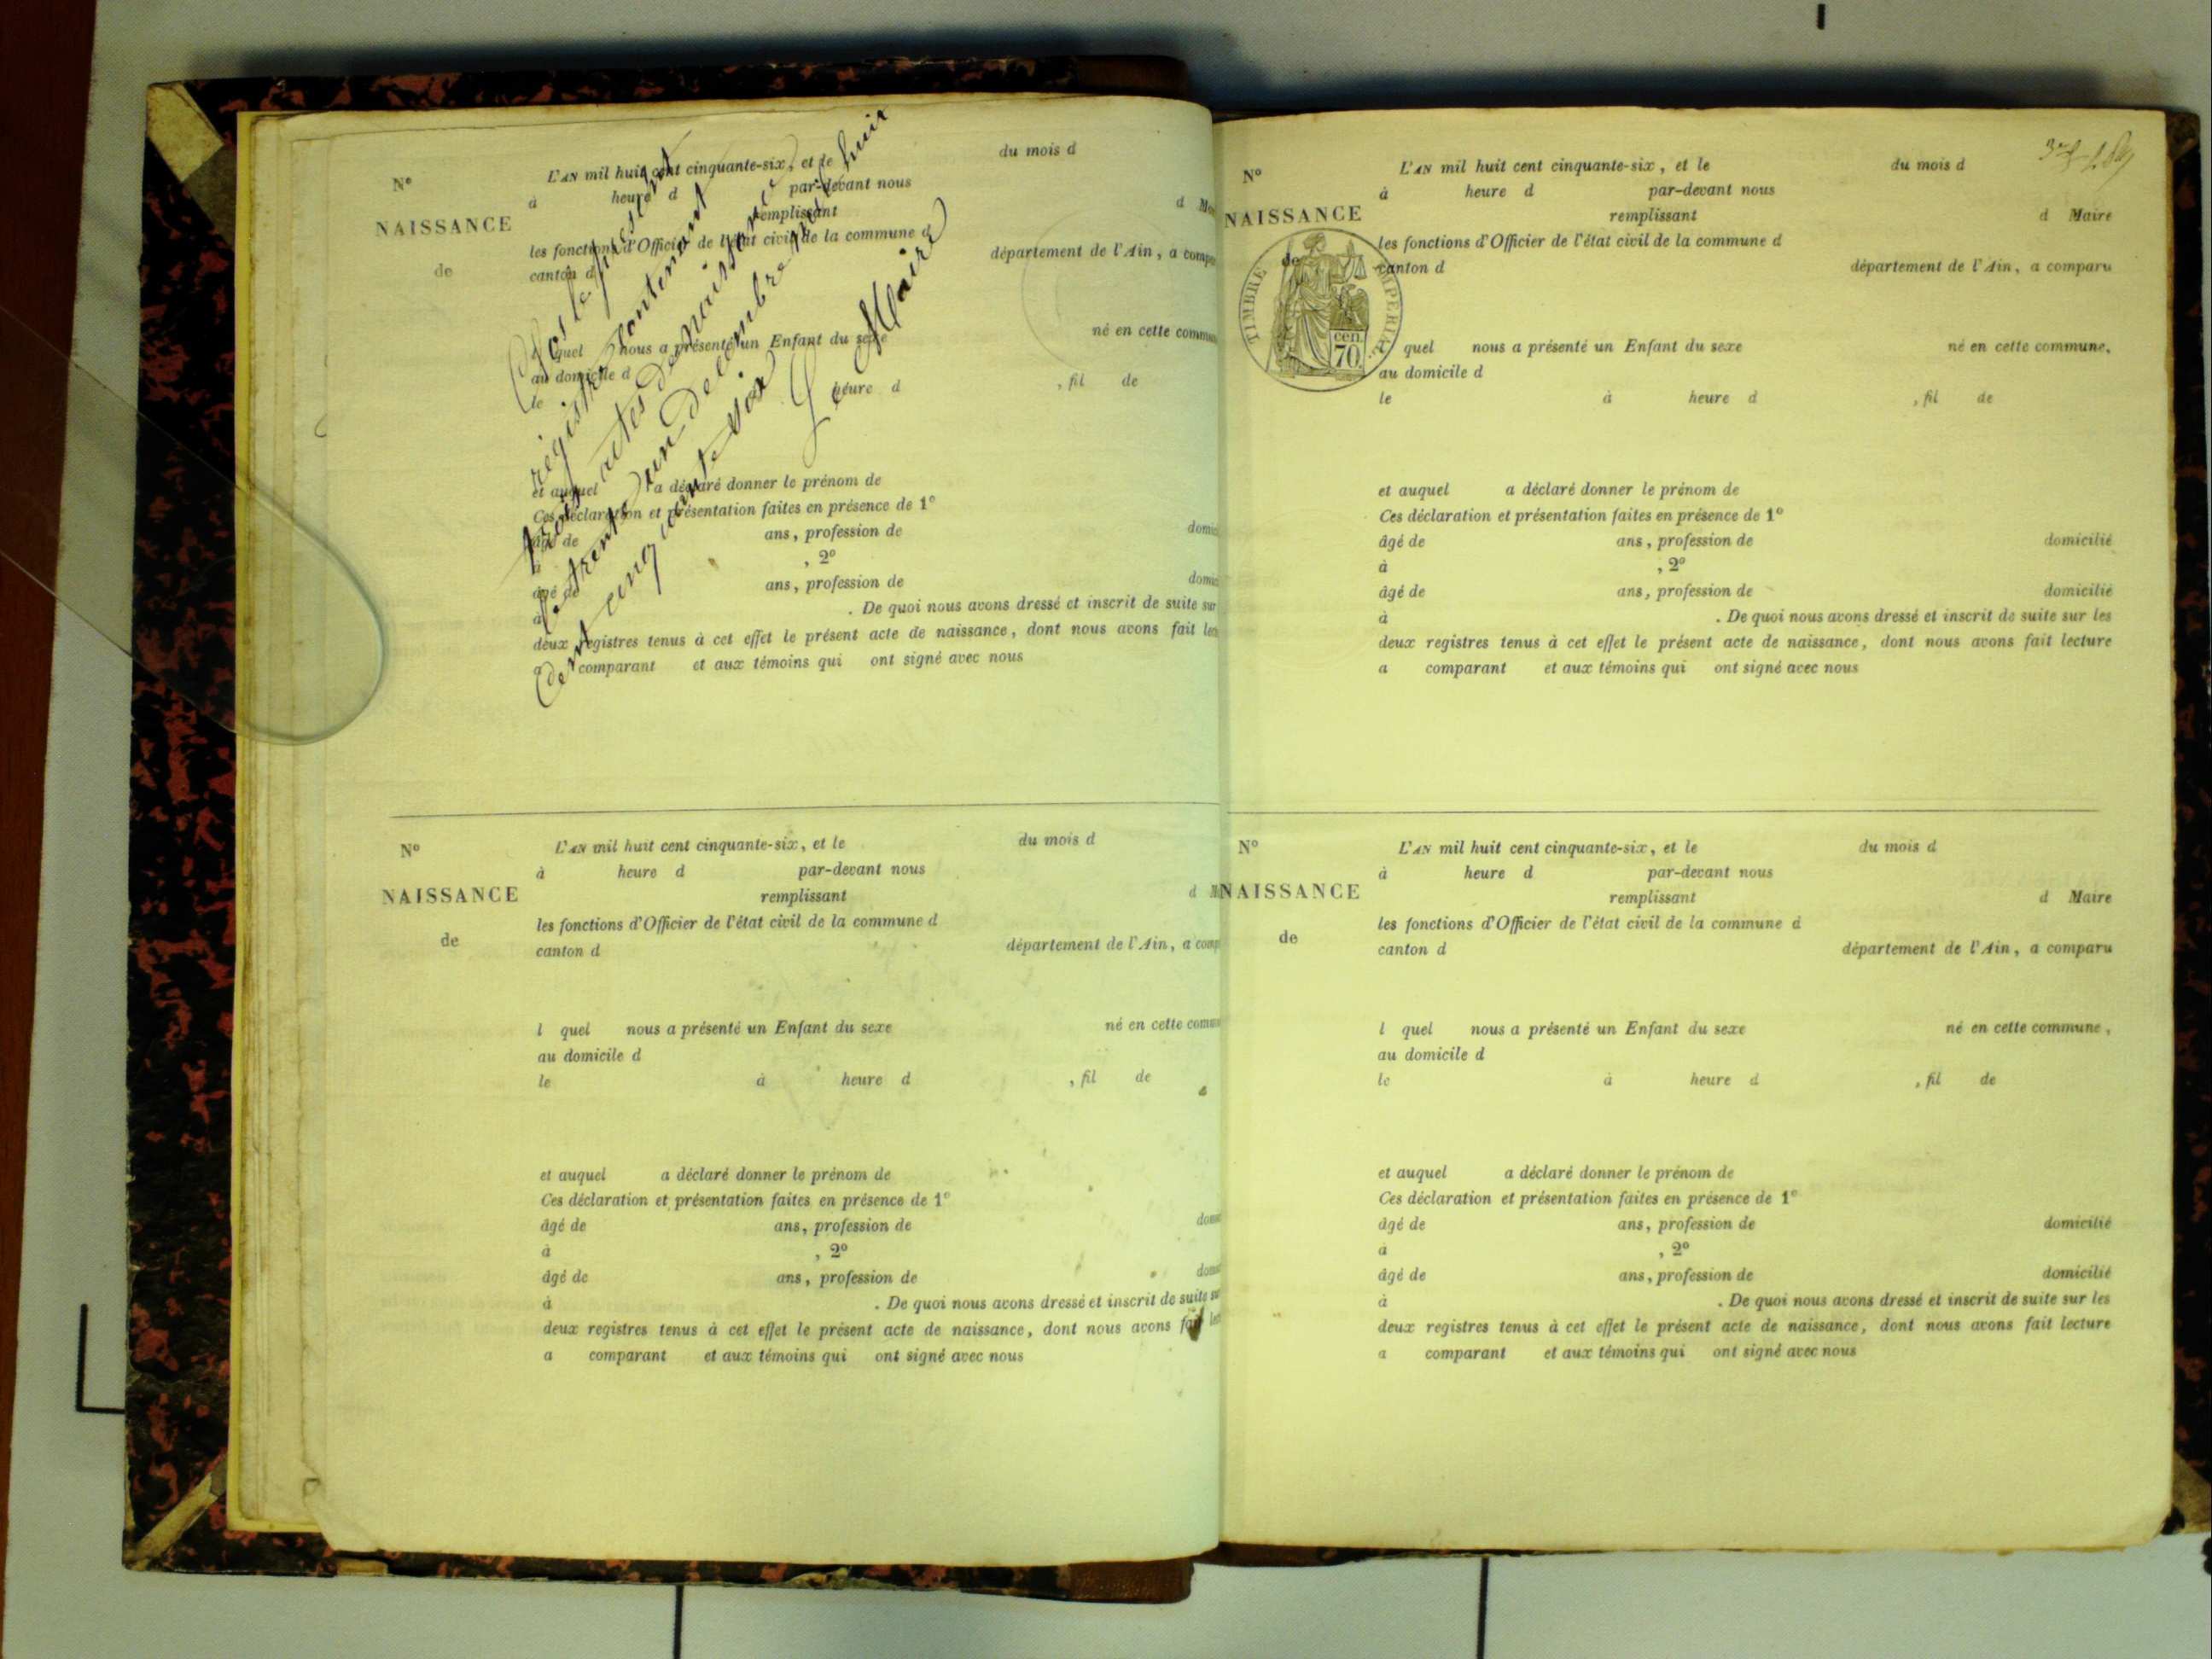 Nº
NAISSANCE
de
L'AN mil huit cent cinquante-six, et le du mois d
à heure d par-devant nous
remplissant d
les fonctions d'Officier de l'état civil de la commune d
canton d département de l'Ain, a
l quel nous a présenté un Enfant du sexe né en cette
au domicile d
le heure d , fil de
et auquel a déclaré donner le prénom de
Ces déclaration et présentation faites en présence de 1º
âgé de ans, profession de
à , 2º
âgé de ans, profession de
à . De quoi nous avons dressé et inscrit de suite sur
deux registres tenus à cet effet le présent acte de naissance, dont nous avons fait
a comparant et aux témoins qui ont signé avec nous
Clos le présent
registre contenant
actes de naissance
le trente un décembre mil huit
cent cinquante-six
Le Maire
Nº
NAISSANCE
de
L'AN mil huit cent cinquante-six, et le du mois d
à heure d par-devant nous
remplissant d
les fonctions d'Officier de l'état civil de la commune d
canton d département de l'Ain, a
l quel nous a présenté un Enfant du sexe né en cette
au domicile d
le à heure d , fil de
et auquel a déclaré donner le prénom de
Ces déclaration et présentation faites en présence de 1º
âgé de ans, profession de
à , 2º
âgé de ans, profession de
à . De quoi nous avons dressé et inscrit de suite
deux registres tenus à cet effet le présent acte de naissance, dont nous avons fait
a comparant et aux témoins qui ont signé avec nous
Nº
NAISSANCE
de
TIMBRE IMPERIAL
70 cen.
L'AN mil huit cent cinquante-six, et le du mois d
à heure d par-devant nous
remplissant d Maire
les fonctions d'Officier de l'état civil de la commune d
canton d département de l'Ain, a comparu
l quel nous a présenté un Enfant du sexe né en cette commune,
au domicile d
le à heure d , fil de
et auquel a déclaré donner le prénom de
Ces déclaration et présentation faites en présence de 1º
âgé de ans, profession de domicilié
à , 2º
âgé de ans, profession de domicilié
à . De quoi nous avons dressé et inscrit de suite sur les
deux registres tenus à cet effet le présent acte de naissance, dont nous avons fait lecture
a comparant et aux témoins qui ont signé avec nous
Nº
NAISSANCE
de
L'AN mil huit cent cinquante-six, et le du mois d
à heure d par-devant nous
remplissant d Maire
les fonctions d'Officier de l'état civil de la commune d
canton d département de l'Ain, a comparu
l quel nous a présenté un Enfant du sexe né en cette commune,
au domicile d
le à heure d , fil de
et auquel a déclaré donner le prénom de
Ces déclaration et présentation faites en présence de 1º
âgé de ans, profession de domicilié
à , 2º
âgé de ans, profession de domicilié
à . De quoi nous avons dressé et inscrit de suite sur les
deux registres tenus à cet effet le présent acte de naissance, dont nous avons fait lecture
a comparant et aux témoins qui ont signé avec nous